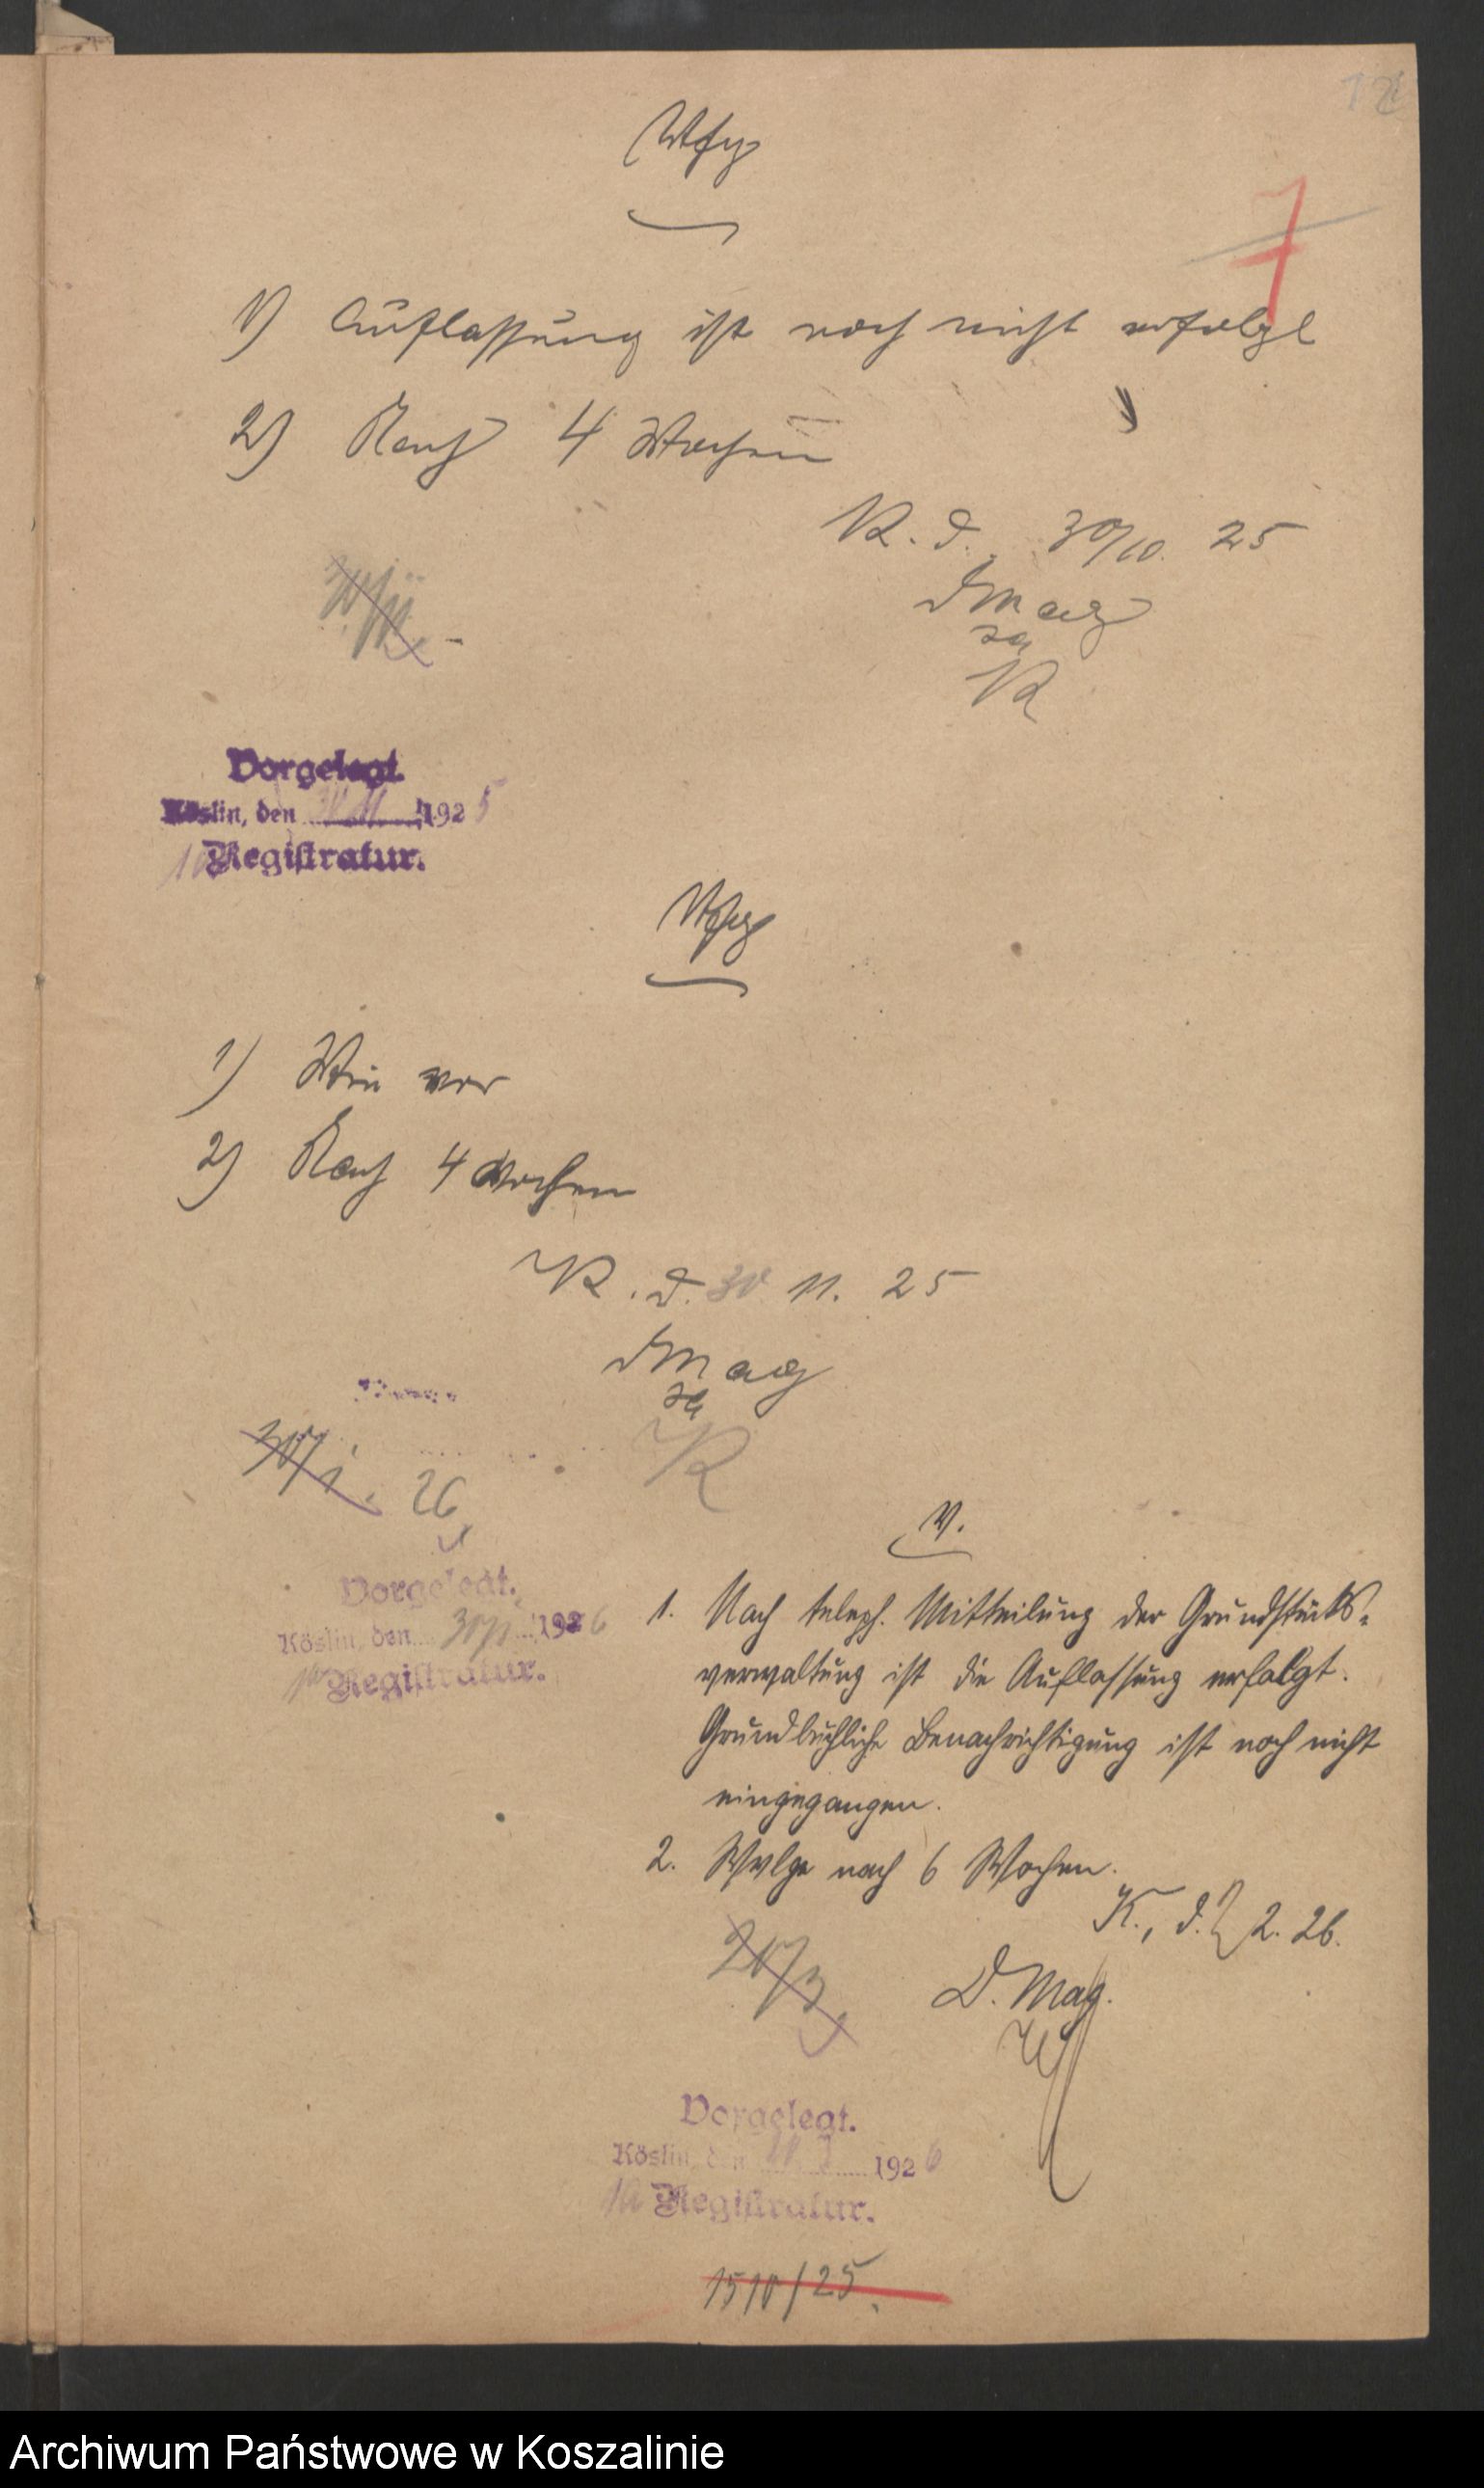 12
Vfg
7
1) Auflassung ist noch nicht erfolgt
2) Nach 4 Wochen
K. d. 30/10. 25
DMag
K
Vorgelegt.
Köslin, den 30/11 1925
Registratur.
Vfg
1) Wie vor
2) Nach 4 Wochen
K. d. 30 11. 25
DMag
K
30/1. 26
V.
Vorgelegt.
Köslin, den 30/1 1926
Registratur.
1. Nach teleph. Mitteilung der Grundstücks-
verwaltung ist die Auflassung erfolgt.
Grundbuchliche Benachrichtigung ist noch nicht
eingegangen.
2. Wvlge nach 6 Wochen.
K., d. 2. 26.
20/3
D. Mag.
Vorgelegt.
Köslin, den 1926
Registratur.
1510/25.
Archiwum Państwowe w Koszalinie